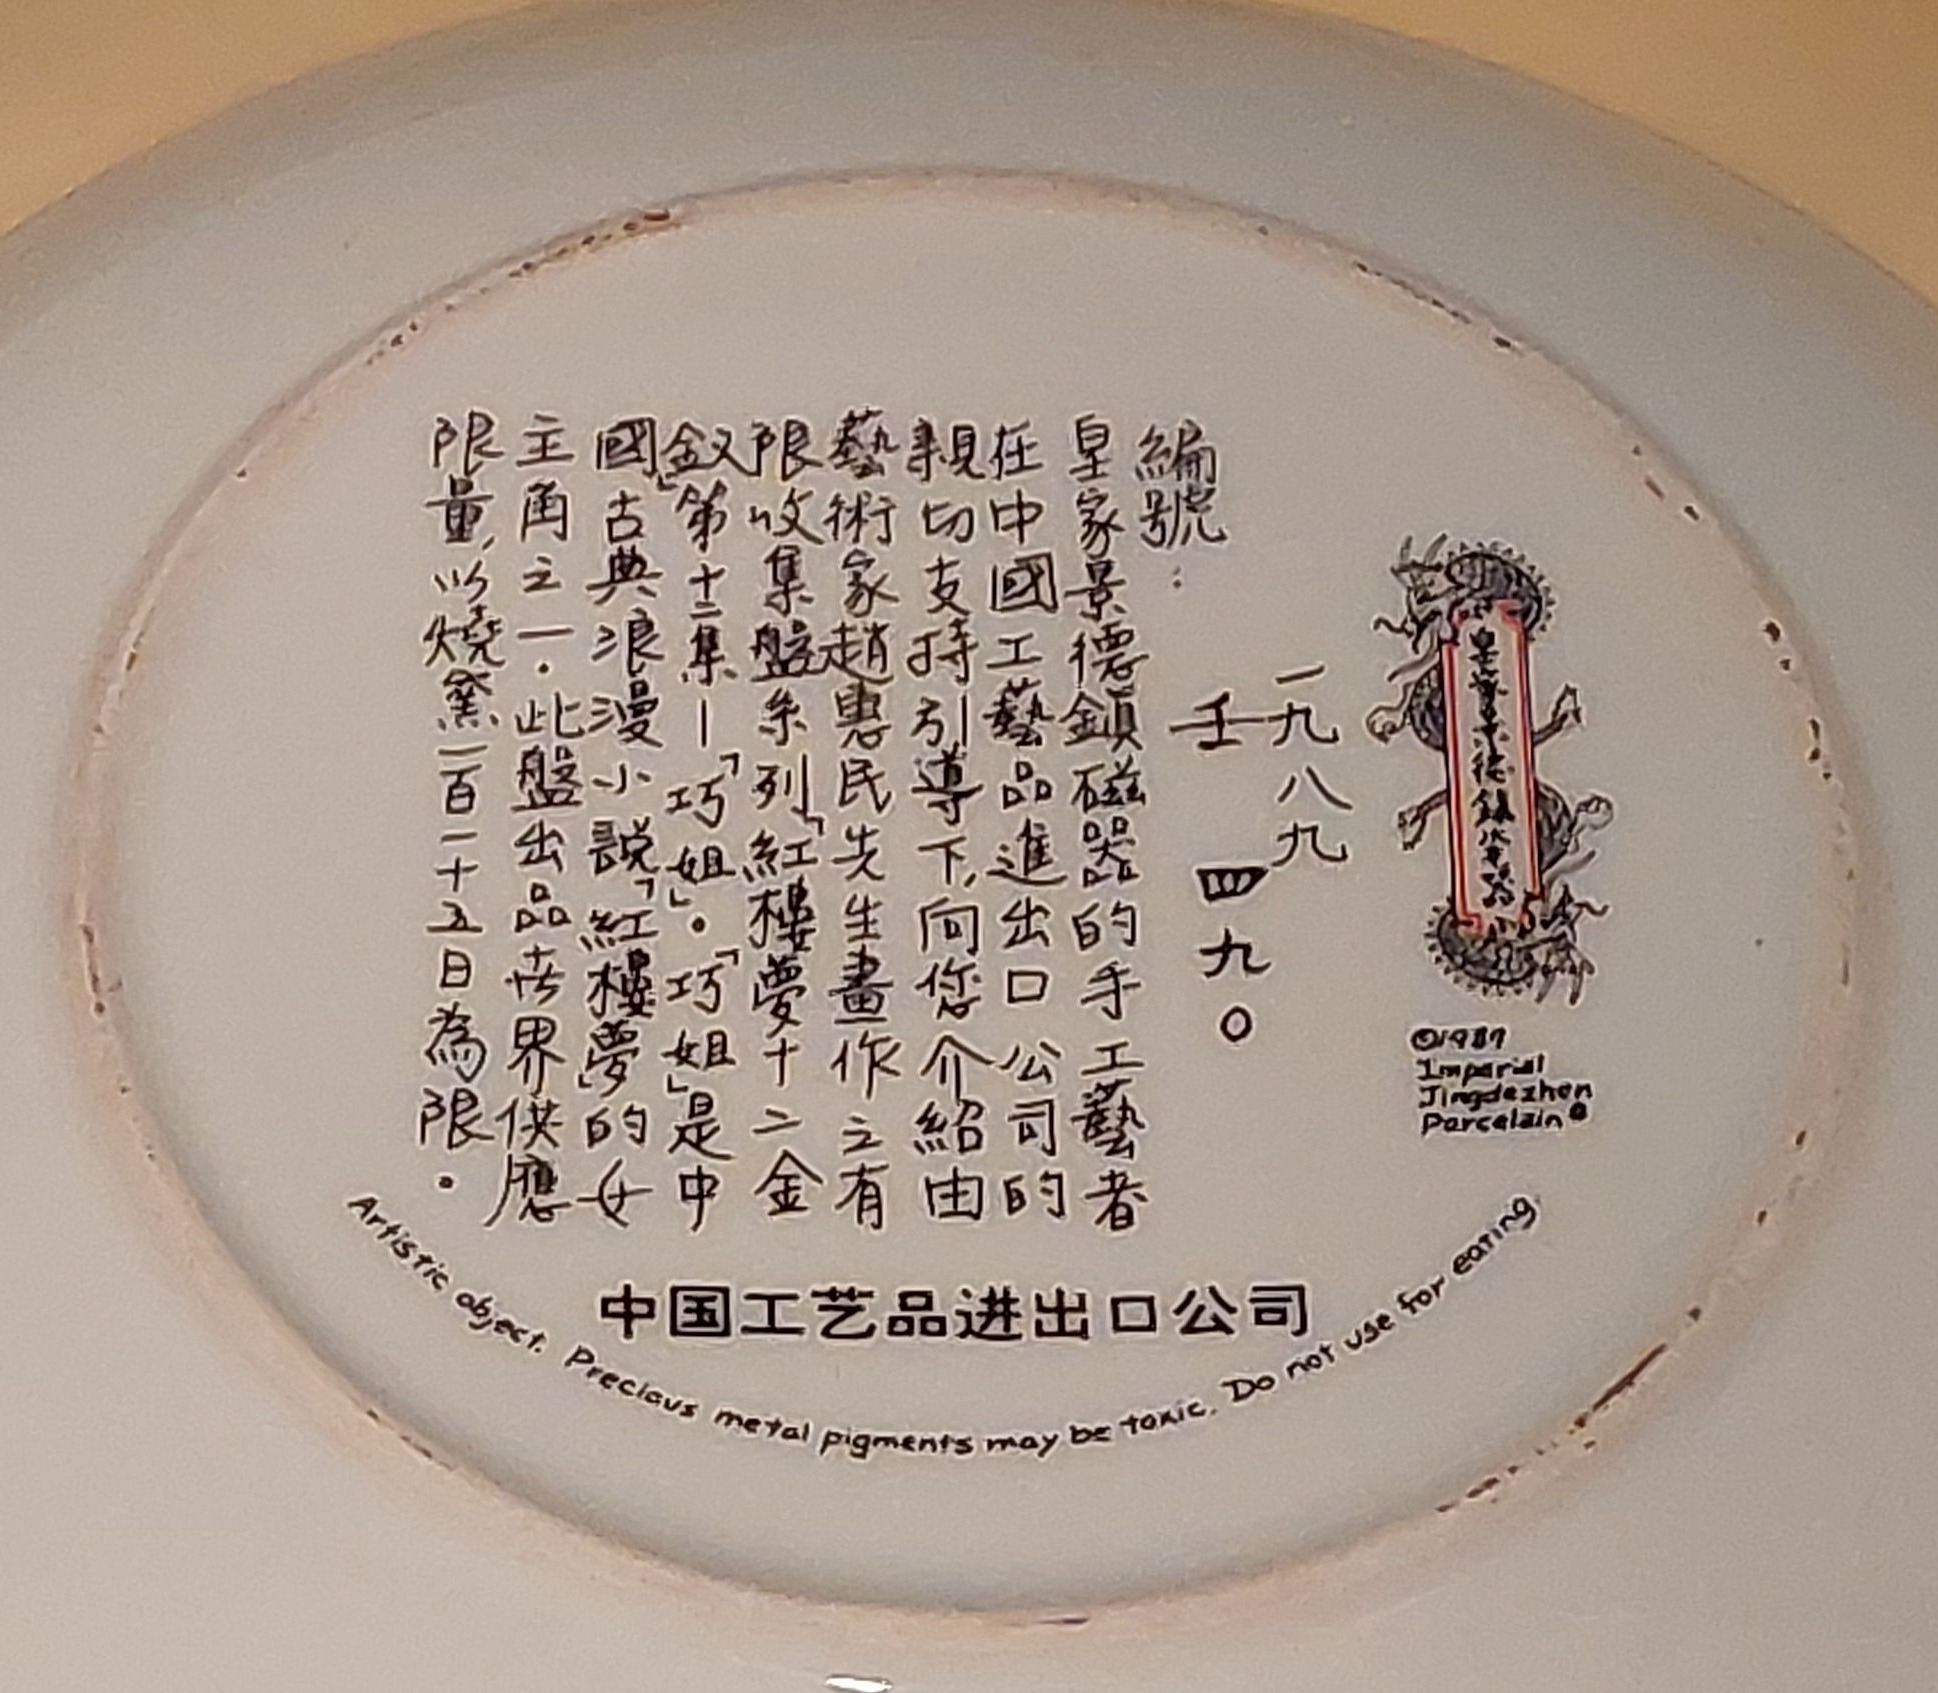 皇家景德鎮
©1989
Imperial
Jingdezhen
Porcelain®
一九八九
壬 四九〇
編號：
皇家景德鎮磁器的手工藝者
在中國工藝品進出口公司的
親切支持引導下，向您介紹由
藝術家趙惠民先生畫作之有
限收集盤系列「紅樓夢十二金
釵」第十二集—「巧姐」。「巧姐」是中
國古典浪漫小說「紅樓夢」的女
主角之一．此盤出品世界供應
限量，以燒窯一百一十五日為限．
中国工艺品进出口公司
Artistic object. Precious metal pigments may be toxic. Do not use for eating.